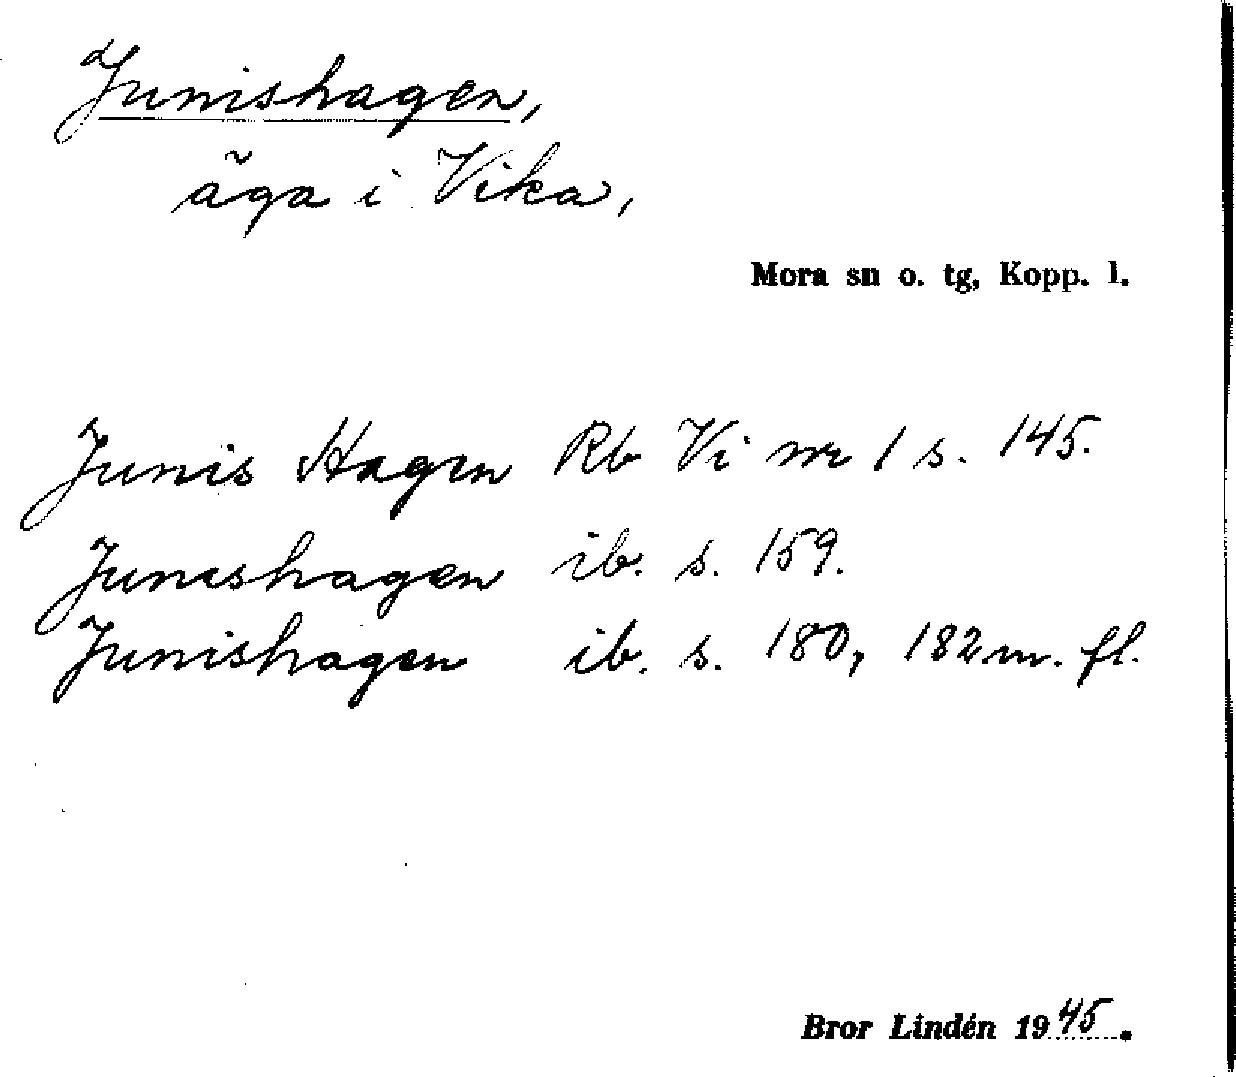 Junishagen,
äga i Vika,
Mora sn o. tg, Kopp. l.
Junis Hagen Rb Vi nr 1 s. 145.
Junishagen ib. s. 159.
Junishagen ib. s. 180, 182 m. fl.
Bror Lindén 1945.